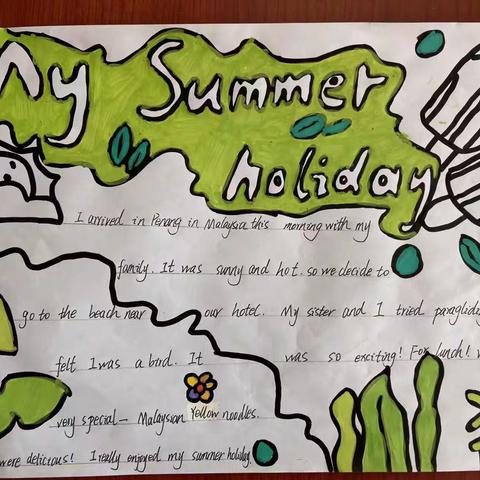 My Summer
holiday
I arrived in Penang in Malaysia this morning with my
family. It was sunny and hot. so we decide to
go to the beach near our hotel. My sister and I tried
felt I was a bird. It was so exciting! For lunch!
very special- Malaysian Yellow noodles.
were delicious! I really enjoyed my summer holiday.